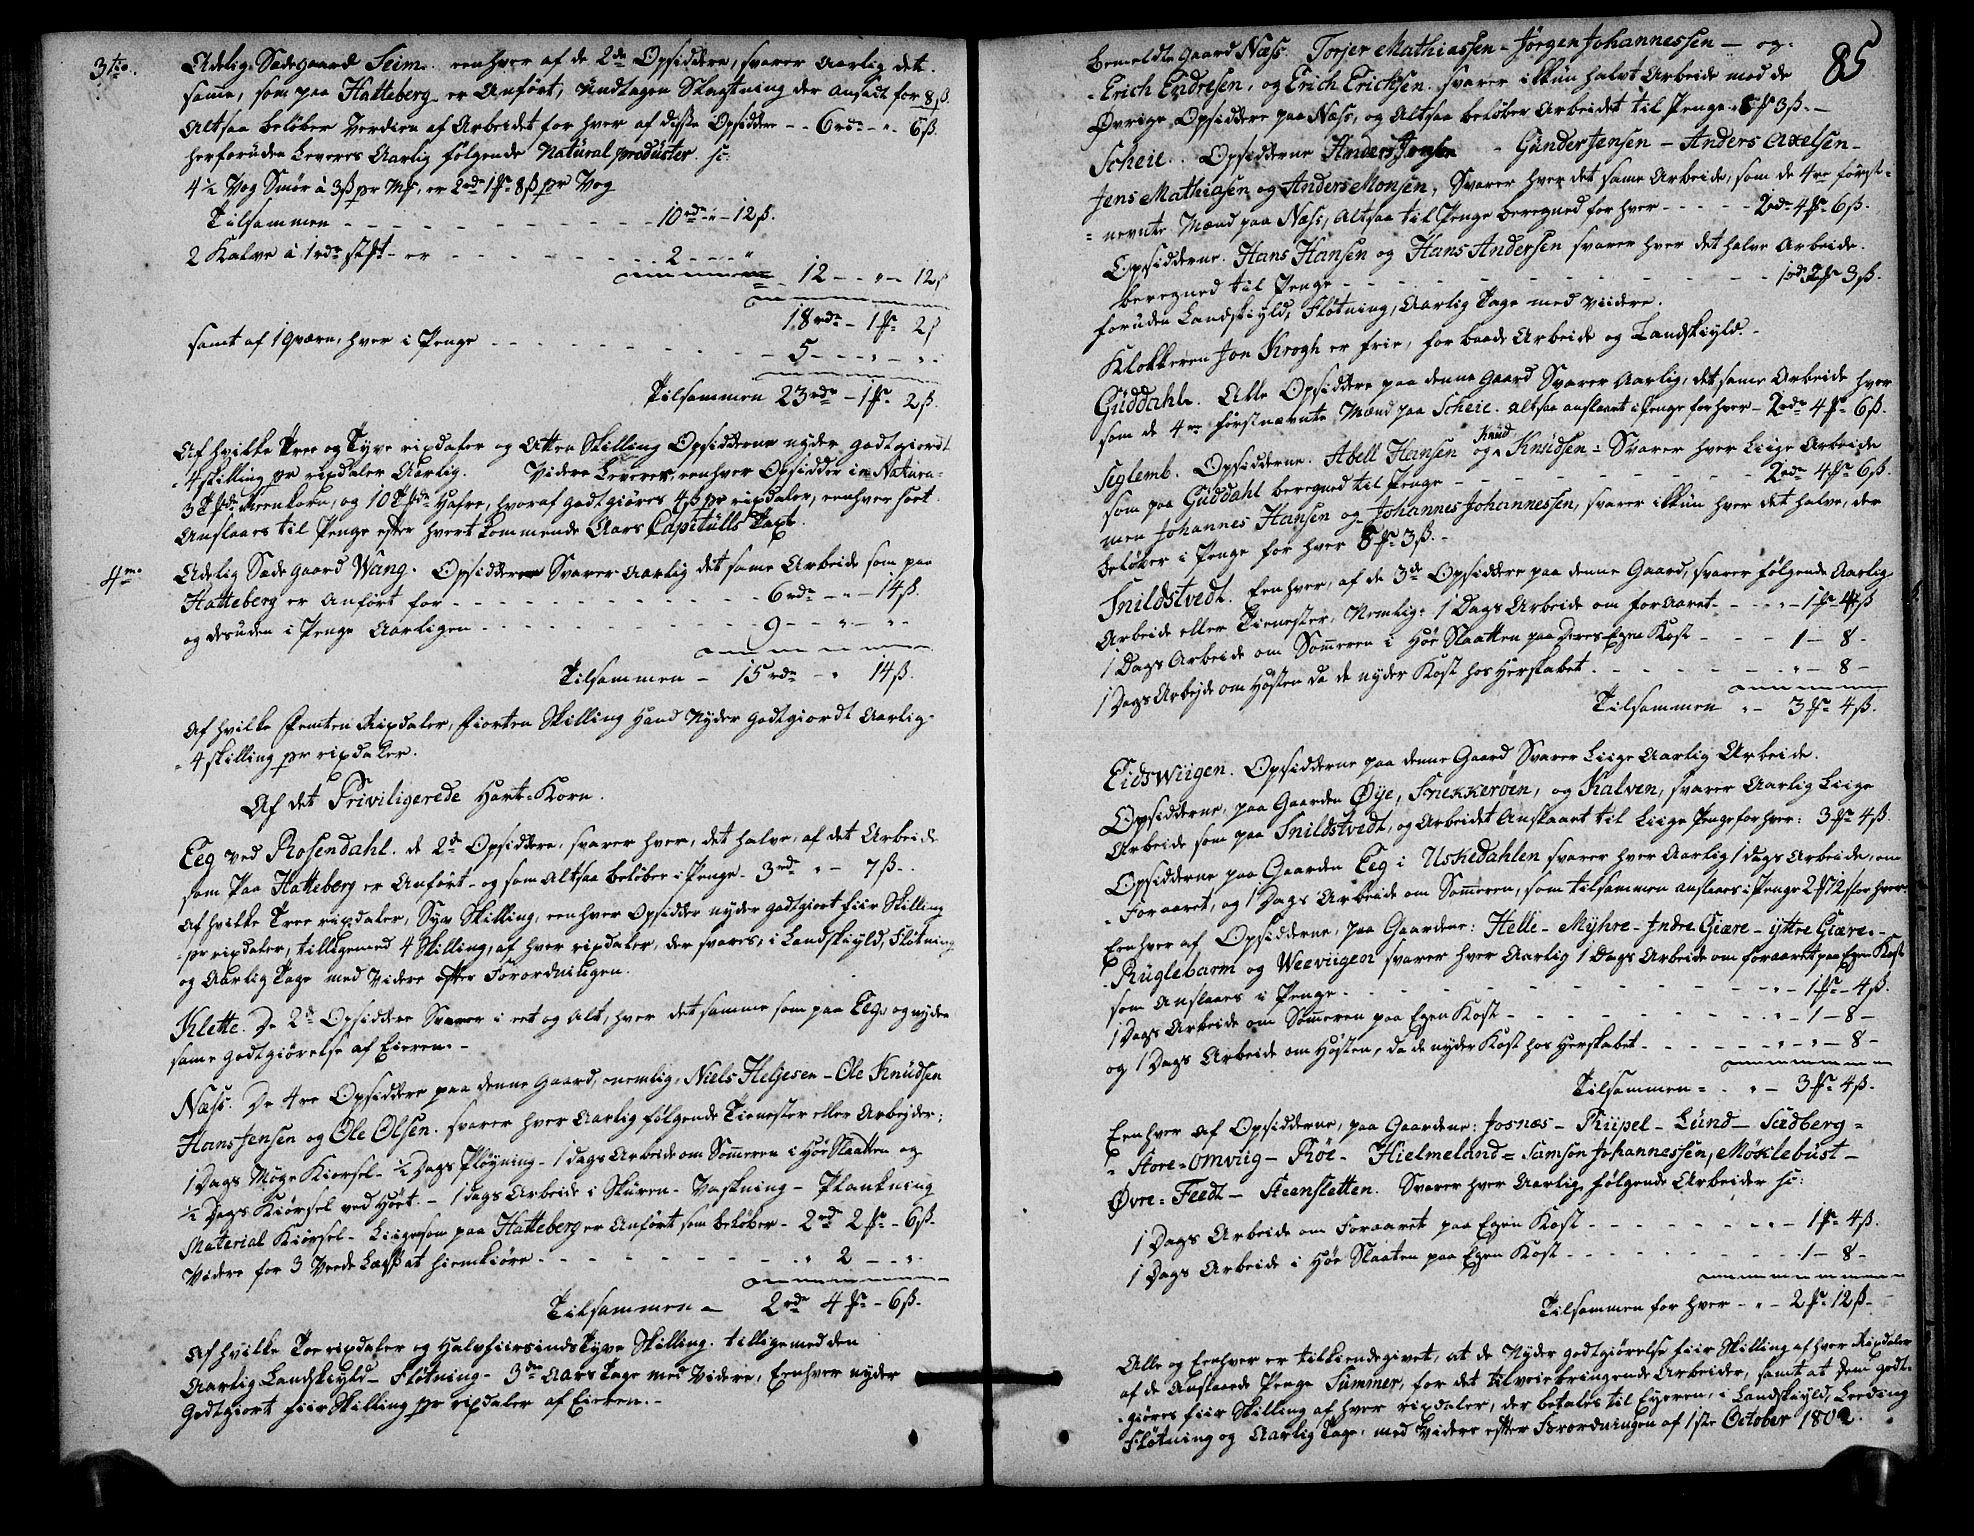 3tio. Adelig Sædegaard Seim. eenhver af de 2de Opsiddere, svarer Aarlig det
samme, som paa Hatteberg er Anført, Undtagen Slagtning der ansadt for 8ß.
Altsaa beløber Verdien af Arbeidet for hver af disse Opsiddere - - 6rdr - " - 6ß.
herforuden Leveres Aarlig følgende Natural producter. sc:
4½ Vog Smør à 3ß pr Mk, er 2rdr 1 8ß pr Vog
Tilsammen - - - 10rdr " - 12ß.
2 Kalve à 1rdr st - er - - - 2 - - "
12 - " - 12ß
18rdr - 1 2ß
samt af 1 Qværn, hver i Penge - - - 5 - - " - "
Tilsammen 23rdr - 1 2ß.
Af hvilke Tree og Tyve rixdaler og Atten Skilling Opsidderne nyder godtgiordt
4 skilling pr rixdaler Aarlig. Videre Leveres, eenhver Opsidder in Natura
3 Td. Reenkorn, og 10 Td. Hafre, hvoraf godtgiøres 4ß pr rixdaler, eenhver sort
Anslaaes til Penge efter hvert kommende Aars Capitulls Taxt.
4to. Adelig Sædegaard Wang. Opsidderen Svarer Aarlig det same Arbeide som paa
Hatteberg er Anført for - - - 6rdr - " - 14ß.
og desuden i Penge Aarligen - - - 9 - " - "
Tilsammen - 15rdr - " 14ß.
Af hvilke femten Rixdaler, fiorten Skilling Hand Nyder Godtgiordt Aarlig
4 skilling pr rixdaler.
Af det Priviligerede Hart-Korn.
Eeg ved Rosendahl. de 2de Opsiddere, svarer hver, det halve, af det Arbeide
som Paa Hatteberg er Anført - og som Altsaa beløber i Penge - 3rdr " - 7ß -
Af hvilke Tree rixdaler, Syv Skilling, eenhver Opsidder nyder godtgiort fiir Skilling
pr rixdaler, tilligemed 4 Skilling, af hver rixdaler, der svares, i Landskyld, Fløtning
og Aarlig Tage med Videre efter Forordningen.
Klette. De 2de Opsiddere Svarer i eet og Alt, hver det samme som paa Eeg, og nyder
same godtgiørelse af Eieren. -
Næss. De 4re Opsiddere paa denne Gaard, nemlig, Niels Heljesen - Ole Knudsen
Hans Jensen og Ole Olsen. svarer hver Aarlig følgende Tienester eller Arbejder:
1 Dags Møge Kiørsel - ½ Dags Pløyning - 1 dags Arbeide om Sommeren i Høe Slaatten og
½ Dags Kiørsel ved Høet - 1 dags Arbeide i Skuren - Vaskning - Plankning
Material Kiørsel - Liigesom paa Hatteberg er Anført som beløber - 2rdr 2 - 6ß.
Videre for 3 Veede Læss at hiemkiøre - - - " 2 - "
Tilsammen - 2rdr 4 - 6ß.
Af hvilke Toe rixdaler og Halvfiersindstyve Skilling. tilligemed den
Aarlig Landskyld - Fløtning - 3die Aars Tage med Videre, Eenhver nyder
Godtgiort fiir Skilling pr rixdaler af Eieren. -
85
bemeldte Gaard Næss. Torjer Mathiassen - Jørgen Johannessen - og
Erich Endresen, og Erich Erichsen. svarer ikkun halvt Arbeide med de
Øvrige Opsiddere paa Næss, og Altsaa beløber Arbeidet til Penge - 8 3ß. -
Scheie. Opsidderne Anders - Gunder Jensen - Anders Axelsen -
Jens Mathiasen og Anders Monsen, Svarer hver det same Arbeide, som de 4re først-
nevnte Mænd paa Næss, Altsaa til Penge beregned for hver - - - 2rdr 4 6ß.
Opsidderne. Hans Hansen og Hans Andersen svarer hver det halve Arbeide.
beregned til Penge - - - 1rdr 2 3ß.
foruden Landskyld, Fløtning, Aarlig Tage med Viidere.
Klokkeren Jon Krogh er frie, for baade Arbeide og Landskyld. -
Guddahl. Alle Opsiddere paa denne Gaard Svarer Aarlig, det same Arbeide hver
som de 4re førstnævnte Mænd paa Scheie. altsaa anslaaet i Penge for hver - 2rdr 4 6ß.
Seglemb. Opsidderne. Abell Hansen og Knud Knudsen - Svarer hver Liige Arbeide
som paa Guddahl beregned til Penge - - - 2rdr 4 6ß.
men Johannes Hansen og Johannes Johannessen, svarer ikkun hver det halve, der
beløber i Penge for hver 8 3ß. -
Snildstvedt. Eenhver, af de 3de Opsiddere paa denne Gaard, svarer følgende Aarlig
Arbeide eller Tienester, Nemlig: 1 Dags Arbeide om foraaret - - " - 1 4ß
1 Dags Arbeide om Sommeren i Høe Slaatten paa Deres Egen Kost - - - 1 - 8 -
1 Dags Arbejde om Høsten da de nyder Kost hos Herskabet - - - " - 8 -
Tilsammen " - 3 4ß.
Eidswiigen. Opsidderne paa denne Gaard Svarer Liige Aarlig Arbeide.
Opsidderne, paa Gaarden Øye, Snekkerøen, og Kalven, svarer Aarlig Liige
Arbeide som paa Snildstvedt, og Arbeidet Anslaaet til Liige Penge for hver: 3 4ß.
Opsidderne paa Gaarden Eeg i Uskedahlen svarer hver Aarlig 1 dags Arbeide, om
Foraaret, og 1 Dags Arbeide om Sommeren, som tilsammen anslaaes i Penge 2 12ß for hver
Eenhver af Opsidderne, paa Gaardene: Helle - Myhre - Indre Giære - yttre Giære. -
Rüglebarm og Weeviigen svarer hver Aarlig 1 Dags Arbeide om foraaret paa Egen Kost
som Anslaaes i Penge - - - " - 1 - 4ß.
1 Dags Arbeide om Sommeren paa Egen Kost - - - " - 1 - 8 -
og 1 Dags Arbeide om Høsten, da de nyder Kost hos Herskabet - - - " - " - 8 -
Tilsammen - " - 3 4ß.
Eenhver af Opsidderne, paa Gaardene: Josnæs - Rüpel - Lund - Sædberg -
Store-Omviig - Røe - Hielmeland - Samson Johannessen, Møklebust -
Øvre - Feedt - Steensletten. Svarer hver Aarlig følgende Arbeider sc:
1 Dags Arbeide om Foraaret paa Egen Kost - - - " - 1 4ß.
1 Dags Arbeide i Høe Slaaten paa Egen Kost - - - 1 - 8 -
Tilsammen for hver - " - 2 12ß.
Alle og Eenhver er tilkiendegivet, at de Nyder godtgiørelse fiir Skilling af hver Rixdaler
af de Anslaaede Penge Summer, for det tilveiebringende Arbeider, samt at dem godt-
giøres fiir Skilling af hver rixdaler, der betales til Eyeren, i Landskyld, Leeding
Fløtning og Aarlig Tage, med Videre efter Forordningen af 1ste October 1802.